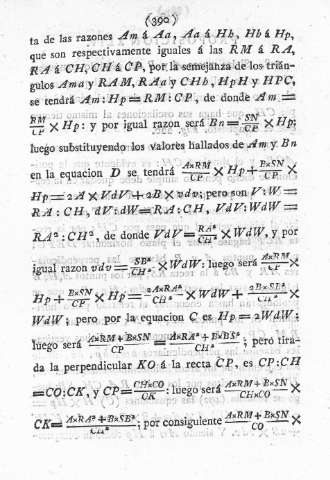 (390)
ta de las razones Am á Aa, Aa á Hb, Hb á Hp,
que son respectivamente iguales á las RM á RA,
RA á CH, CH á CP, por la semejanza de los trián-
gulos Ama y RAM, RAa y CHb, HpH y HPC,
se tendrá Am : Hp = RM : CP, de donde Am =
RM/CP × Hp : y por igual razon será Bn = SN/CP × Hp;
luego substituyendo los valores hallados de Am y Bn
en la equacion D se tendrá A×RM/CP × Hp + B×SN/CP ×
Hp = 2A × VdV + 2B × vdv; pero son V : W =
RA : CH, dV : dW = RA : CH, VdV : WdW =
RA² : CH², de donde VdV = RA²/CH² × WdW, y por
igual razon vdv = SB²/CH² × WdW : luego será A×RM/CP ×
Hp + B×SN/CP × Hp = 2A×RA²/CH² × WdW + 2B×SB²/CH² ×
WdW; pero por la equacion C es Hp = 2WdW;
luego será A×RM + B×SN/CP = A×RA² + B×BS²/CH²; pero tira-
da la perpendicular KO á la recta CP, es CP : CH
= CO : CK, y CP = CH×CO/CK : luego será A×RM + B×SN/CH×CO ×
CK = A×RA² + B×SB²/CH²; por consiguiente A×RM + B×SN/CO ×